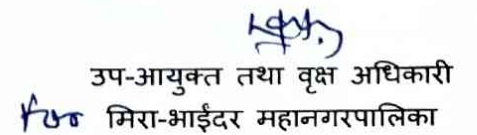 उप-आयुक्त तथा वृक्ष अधिकारी
for मिरा-भाईंदर महानगरपालिका